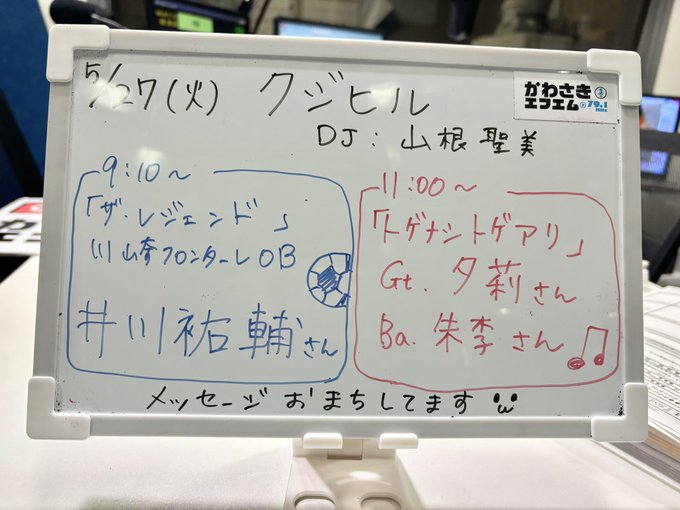 5/27(火) クジヒル
DJ: 山根聖美
かわさき
エフエム 79.1
MHz
9:10～
「ザ・レジェンド」
川崎フロンターレOB
井川祐輔さん
11:00～
「トゲナシトゲアリ」
Gt. 夕莉さん
Ba. 朱李さん
メッセージおまちしてます